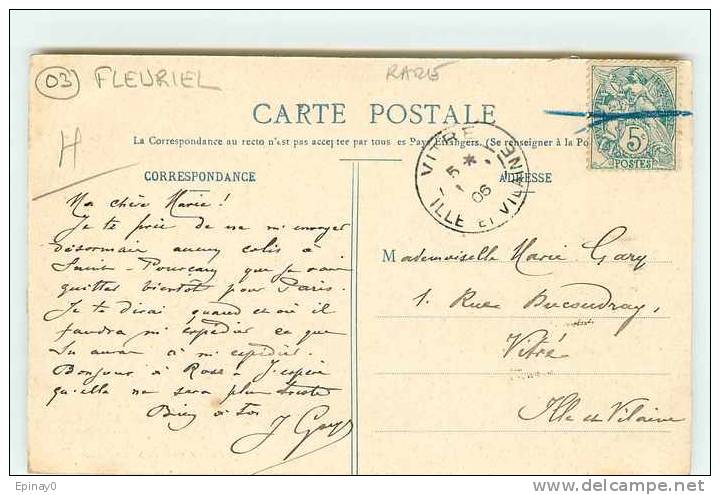 03 FLEURIEL
RARE
H
CARTE POSTALE
La Correspondance au recto n'est pas acceptée par tous les Pays Étrangers. (Se renseigner à la Po
CORRESPONDANCE
ADRESSE
5c
POSTES
VITRÉ
5 *
1
06
ILLE ET VILAINE
Ma chère Marie !
Je te prie de ne m'envoyer
désormais aucun colis à
Saint-Pourçain que je vais
quitter bientôt pour Paris.
Je te dirai quand et où il
faudra m'expédier ce que
tu auras à m'expédier.
Bonjour à Rose. J'espère
qu'elle ne sera plus triste
Bien à toi
J Gary
Mademoiselle Marie Gary
1. Rue Ducoudray,
Vitré
Ille et Vilaine
Epinay0
www.delcampe.net